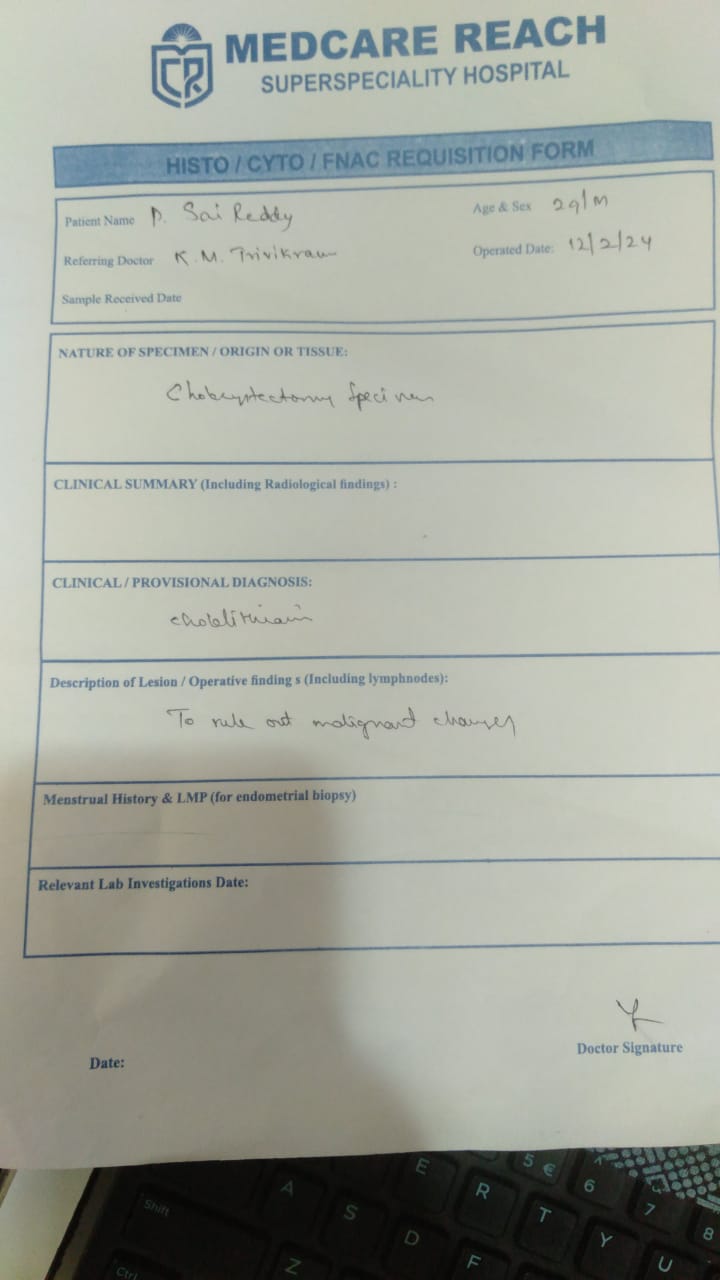 MEDCARE REACH
SUPERSPECIALITY HOSPITAL
HISTO / CYTO / FNAC REQUISITION FORM
Patient Name P. Sai Reddy
Age & Sex 29/M
Referring Doctor K. M. Trivikram
Operated Date: 12/2/24
Sample Received Date
NATURE OF SPECIMEN / ORIGIN OR TISSUE:
Specimen
CLINICAL SUMMARY (Including Radiological findings) :
CLINICAL / PROVISIONAL DIAGNOSIS:
Description of Lesion / Operative finding s (Including lymphnodes):
To rule out malignant changes
Menstrual History & LMP (for endometrial biopsy)
Relevant Lab Investigations Date:
Doctor Signature
Date:
5 €
6
7
8
E
R
T
Y
U
Shift
A
S
D
F
Ctrl
Z